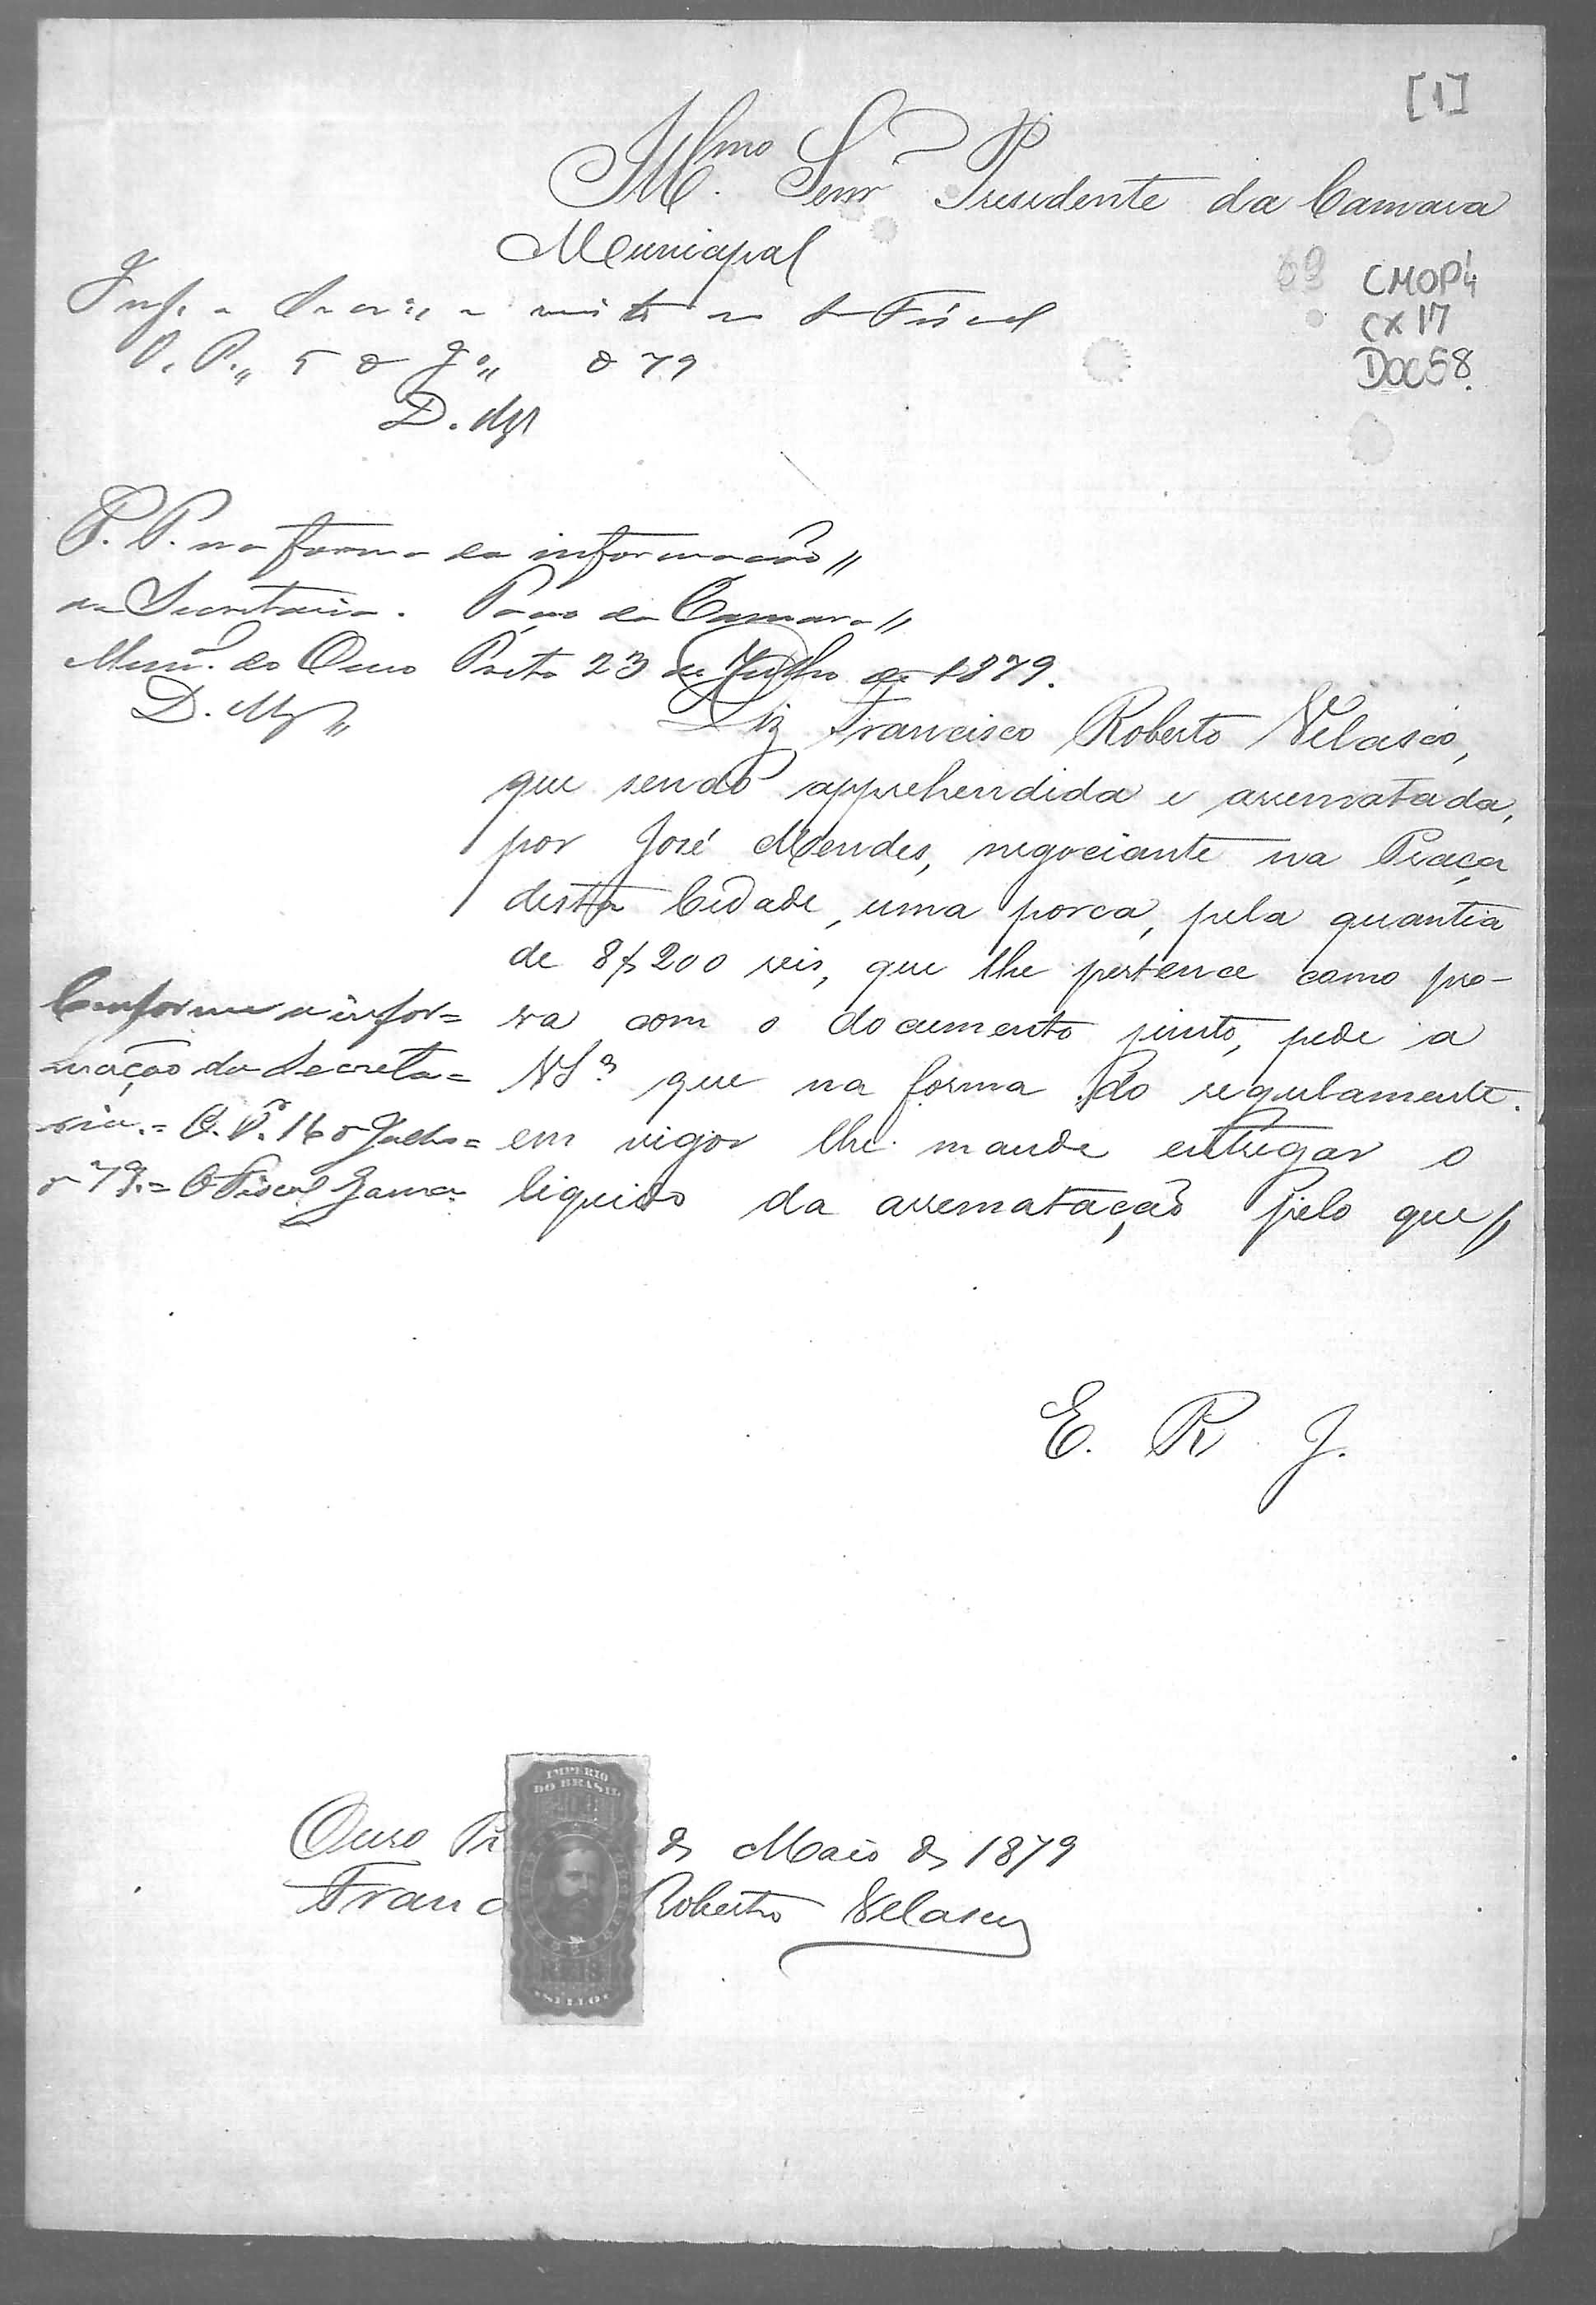 [1]
Illmo. Senr. Presidente da Camara
Municipal
69
CMOP 4
CX 17
DOC 58.
Inf. a a vista do Fiscal
O. P. 5 de J.º de 79
D. Mgs
P. P. na forma da informação
da Secretaria. Paço da Camara
Mun. do Ouro Preto 23 de Julho de 1879.
D. Mgs
Diz Francisco Roberto Velasco,
que sendo apprehendida e arrematada,
por José Mendes, negociante na Praça
desta Cidade, uma porca, pela quantia
de 8$200 reis, que lhe pertence como pro-
va com o documento junto, pede a
VSª que na forma do regulamente
em vigor lhe mande entregar o
liquido da arrematação pelo que
Conforme a infor=
mação da Secreta=
ria.= O. Pº. 16 de Julho=
de 79.= O Fiscal Gama
E. R. J.
IMPERIO
DO BRASIL
REIS
SELLO
Ouro Pr de Maio de 1879
Franc Roberto Velasco